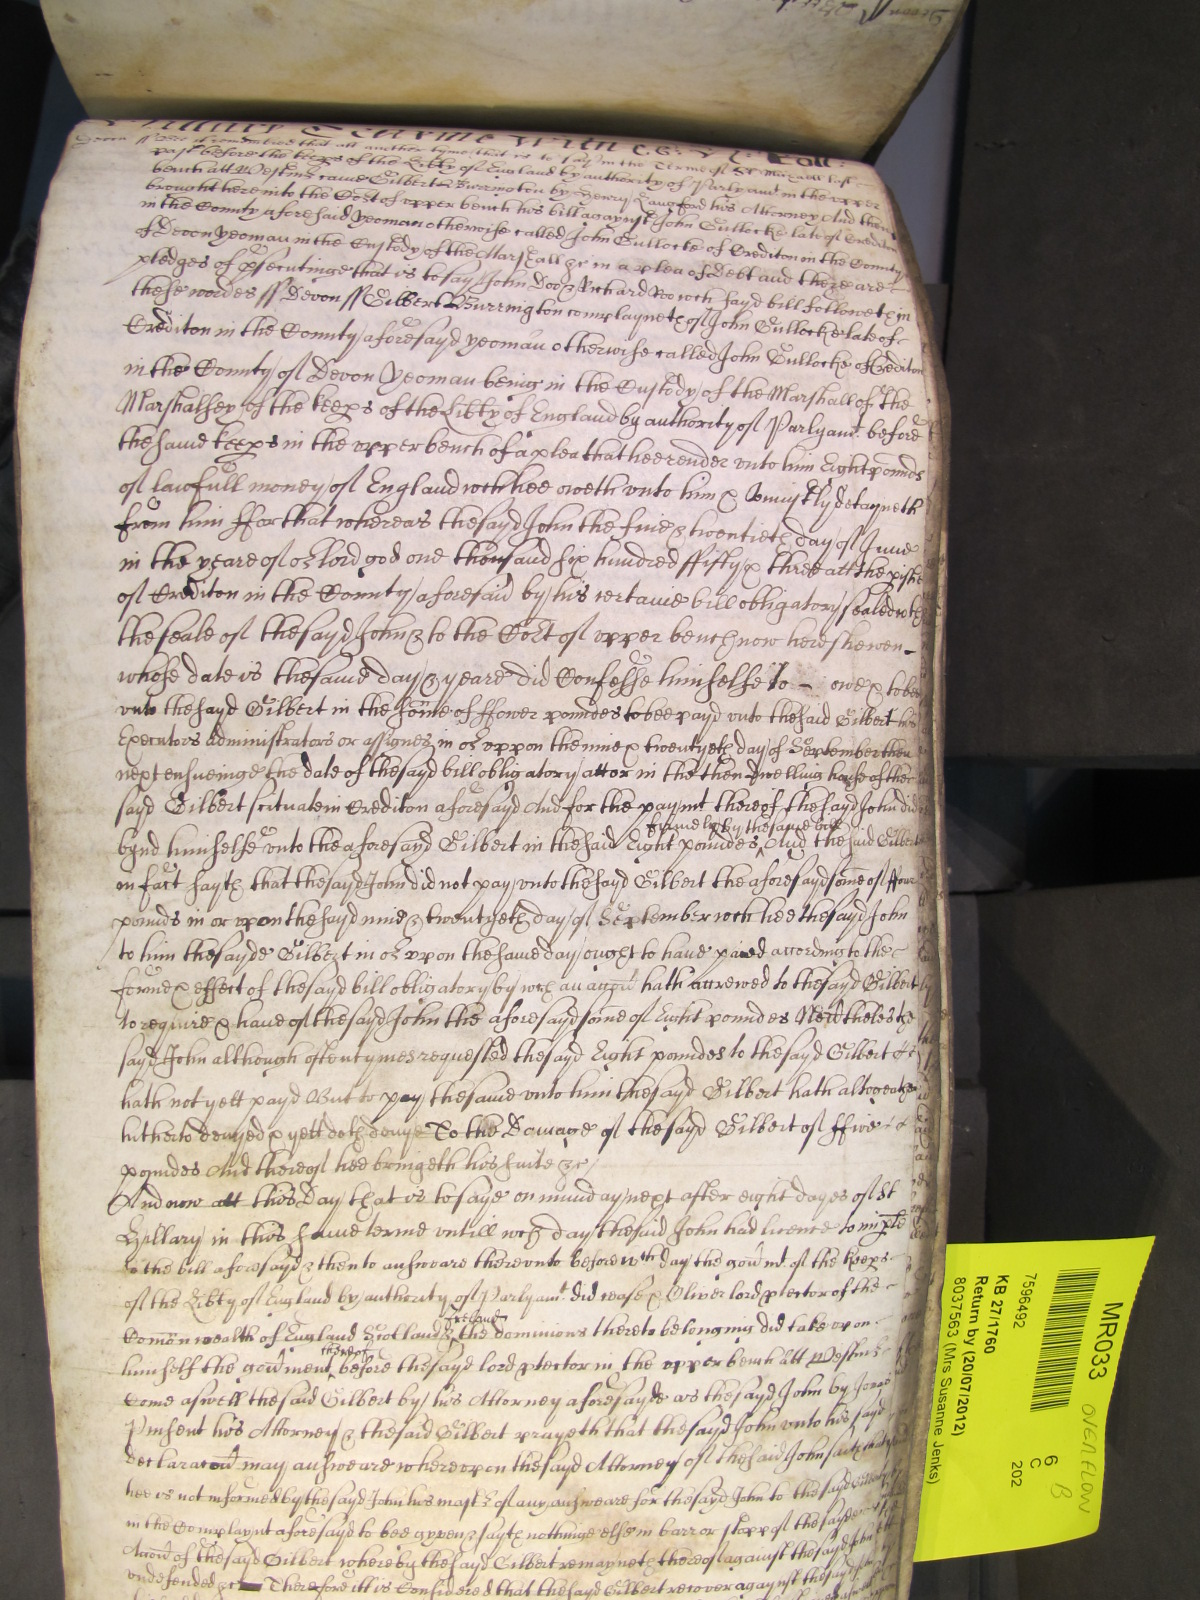 Devon ss Bee it remembred that att another tyme that is to say in the Terme of St Michaell last
past before the keeps of the Libty of England by authority of Parlyamt in the upper
bench att Westmr came Gilbert Burrington by Henry Langford his Attorney And then
brought here into the Cort of upper bench his bill against John Bullocke late of Crediton
in the County aforesaid yeoman otherwise called John Bullocke of Crediton in the County
of Devon yeoman in the Custody of the Marshall &c in a plea of debt and there are
pledges of psecutinge that is to say John Doo & Richard Roo wch sayd bill followeth in
these wordes ss Devon ss Gilbert Burrington complayneth of John Bullocke late of
Crediton in the County aforesayd yeoman otherwise called John Bullocke of Crediton
in the County of Devon yeoman being in the Custody of the Marshall of the
Marshalsey of the keeps of the Libty of England by authority of Parlyamt before
the same keeps in the upper bench of a plea that hee render unto him Eight pounds
of lawfull money of England wch hee oweth unto him & uniustly detayneth
from him ffor that whereas the sayd John the five & twentieth day of June
in the yeare of or lord god one thousand six hundred ffifty & three att the pishe
of Crediton in the County aforesaid by his certaine bill obligatory sealed wth
the seale of the sayd John & to the Cort of upper bench now here shewen
whose date is the same day & yeare did Confesse himselfe to owe & to bee
unto the sayd Gilbert in the some of ffower pounds to bee payd unto the said Gilbert his
Executors administrators or assignes in or uppon the nine & twentyeth day of September then
next ensueinge the date of the sayd bill obligatory att or in the then dwelling house of the
sayd Gilbert scituate in Crediton aforesayd And for the paymt thereof the sayd John did
firmely by the same bill
bynd himselfe unto the aforesayd Gilbert in the said Eight poundes And the said Gilbert
in fact sayth that the sayd John did not pay unto the sayd Gilbert the aforesayd some of ffour
pounds in or upon the sayd nine & twentyeth day of September wch hee the sayd John
to him the sayde Gilbert in or upon the same day ought to have paied according to the
forme & effect of the sayd bill obligatory by wch an accon hath accrewed to the sayd Gilbert
to require & have of the sayd John the aforesayd some of Eight poundes Nevtheles the
sayd John although oftentymes requested the sayd Eight poundes to the sayd Gilbert
hath not yett payd But to pay the same unto him the sayd Gilbert hath altogeather
hitherto denyed & yett doth denye To the Damage of the sayd Gilbert of ffive
poundes And thereof hee bringeth his suite &c
And now att this day that is to saye on munday next after eight dayes of St
Hillary in this same terme untill wch day the said John had licence to imple
to the bill aforesayd & then to answeare thereunto before wch day the govmt of the keeps
of the Libty of England by authority of Parlyamt did cease & Oliver lord ptector of the
Ireland
Comon wealth of England Scotland & the dominions thereto belonging did take upon
thereof
himself the govment before the sayd lord ptector in the upper bench att Westmr
Come aswell the said Gilbert by his Attorney aforesayde as the sayd John by
Pinsent his Attorney & the said Gilbert prayeth that the sayd John unto his sayd
declaracon may answeare whereupon the sayd Attorney of the said John saith that
hee is not informed by the sayd John his mastr of any answeare for the sayd John to the sayd Gilbert
in the Complaynt aforesayd to bee gyven & sayth nothinge else in barr or stopp of the sayde
Accon of the sayd Gilbert whereby the sayd Gilbert remayneth thereof against the sayd John
undefended &c Therefore itt is Considered that the sayd Gilbert recover against the sayd John
MR033
OVERFLOW
B
7596492
6
C
202
KB 27/1760
Return by (20/07/2012)
8037563 (Mrs Susanne Jenks)